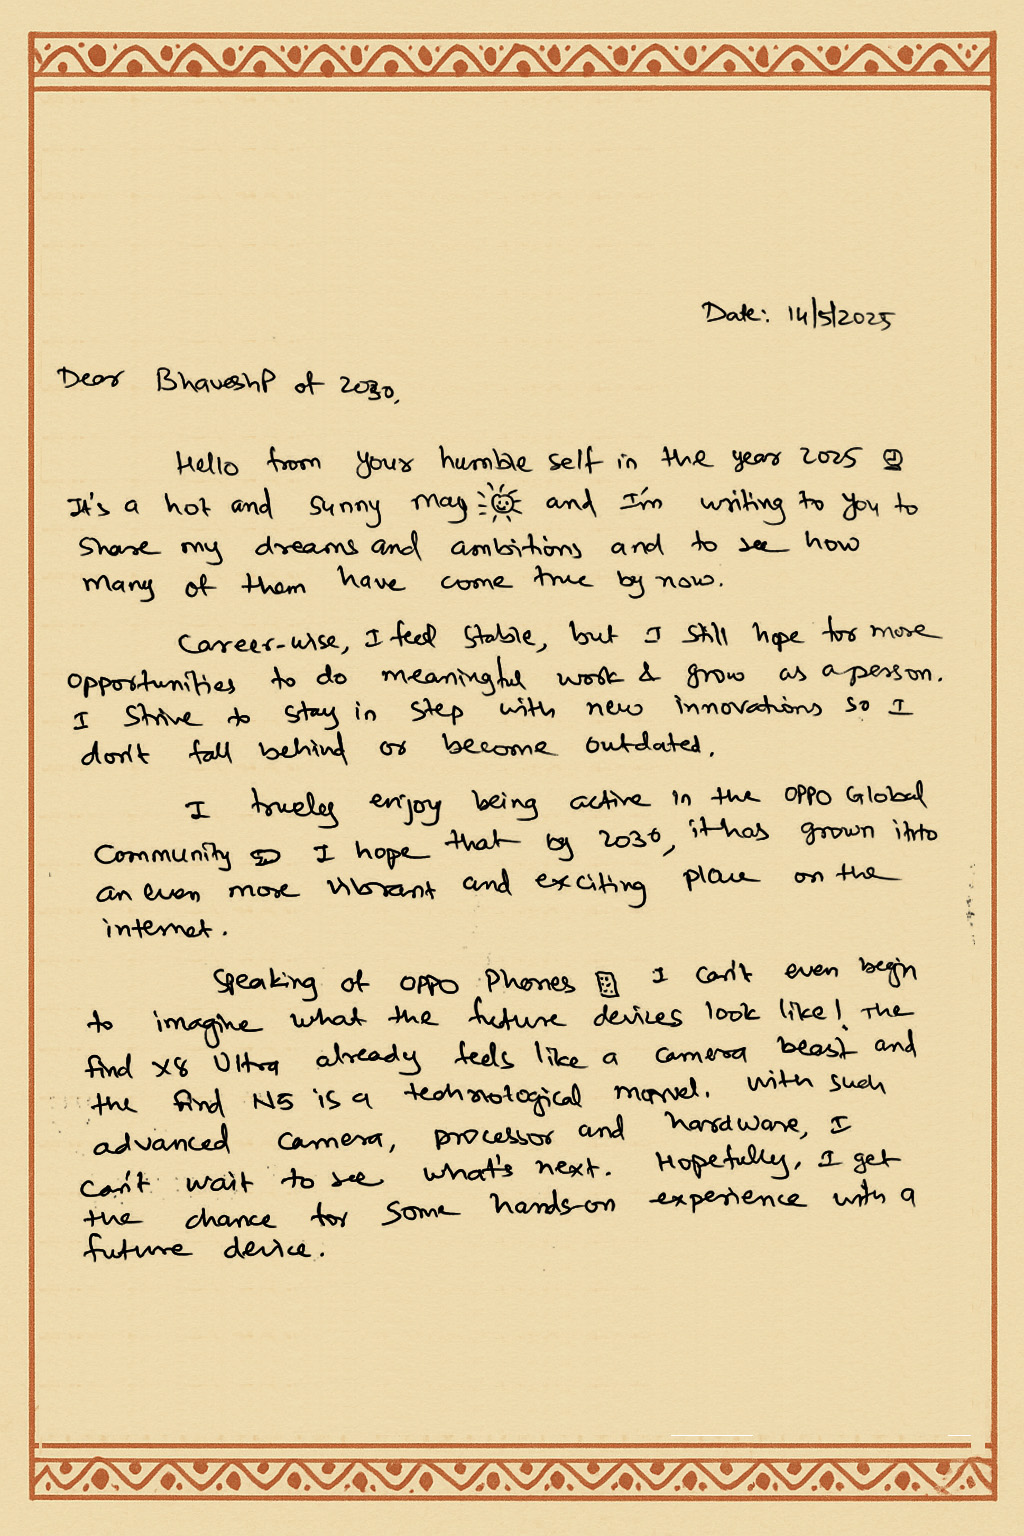 Date: 14/5/2025
Dear BhaveshP of 2030,
Hello from your humble self in the year 2025
It's a hot and sunny may and I'm writing to you to
share my dreams and ambitions and to see how
many of them have come true by now.
Career-wise, I feel stable, but I still hope for more
opportunities to do meaningful work & grow as a person.
I strive to stay in step with new innovations so I
don't fall behind or become outdated.
I truely enjoy being active in the OPPO Global
Community I hope that by 2030, it has grown into
an even more vibrant and exciting place on the
internet.
Speaking of OPPO Phones I can't even begin
to imagine what the future devices look like! The
find X8 Ultra already feels like a camera beast and
the find N5 is a technological marvel. With such
advanced camera, processor and hardware, I
can't wait to see what's next. Hopefully, I get
the chance for some hands-on experience with a
future device.